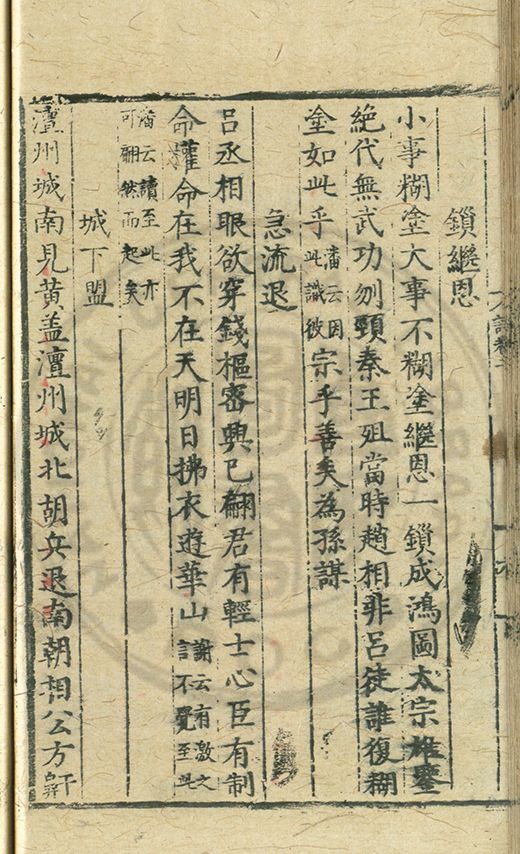 鎖繼恩
小事糊塗大事不糊塗繼恩一鎖成鴻圖太宗雄鑒
絕代無武功刎頸秦王殂當時趙相非呂徒誰復糊
塗如此乎潘云因此識彼宗乎善矣為孫謀
急流退
呂丞相眼欲穿錢樞密興已翩君有輕士心臣有制
命權命在我不在天明日拂衣遊華山謝云有激之言不覺至此
潘云讀至此亦可翩然而起矣
城下盟
澶州城南見黃蓋澶州城北胡兵退南朝相公方鼾